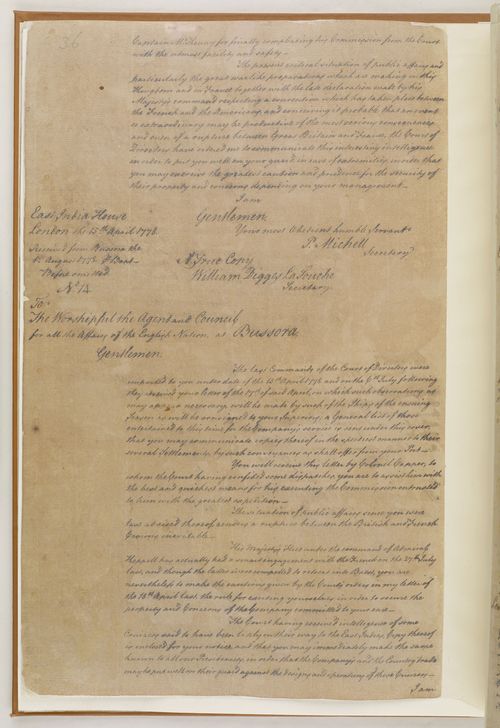 36
Captain McHenry for finally compleating his Commission from the Court
with the utmost facility and safety —
The present critical situation of public affairs and
particularly the great warlike preparations which are making in this
Kingdom and in France together with the late declaration made by his
Majesty's command respecting a convention which has taken place between
the French and the Americans and conceiving it probable that an event
so extraordinary may be productive of the most serious consequences
and even of a rupture between Great Britain and France, the Court of
Directors have ordered me to communicate this interesting intelligence
in order to put you well on your guard in case of extremities, in order that
you may exercise the greatest caution and prudence for the security of
their property and concerns depending on your management —
I am
East India House
Gentlemen
London the 15th April 1778
Your most Obedient humble Servant
P. Michell
Secretary
Received from Bussora the
1st August 1778
Before omitted
A True Copy
William Digges LaTouche
Secretary
No. 14
To
The Worshipful the Agent and Council
for all the Affairs of the English Nation at Bussora
Gentlemen
The last Commands of the Court of Directors were
imparted to you under date of the 15th April 1778 and on the 9th July following
they received your letter of the 17th of said April, on which such observations as
may appear necessary will be made by such of the Ships of the ensuing
Season as will be consigned to your Superiors, a General list of those
entertained to this time for the Company's service is sent under this cover,
that you may communicate copies thereof in the speediest manner to their
several Settlements, by such conveyances as shall offer from your Port —
You will receive this letter by Colonel Capper, to
whom the Court having confided some dispatches, you are to assist him with
the best and quickest means for his executing the Commission entrusted
to him with the greatest expedition —
The situation of public affairs since you were
last advised thereof renders a rupture between the British and French
Crowns inevitable —
His Majesty's Fleet under the command of Admiral
Keppell has actually had a smart engagement with the French on the 27th July
last, and though the latter were compelled to retire into Brest, you are
nevertheless to make the cautions given by the Court's orders in my letter of
the 15th April last the rule for exerting yourselves in order to secure the
property and Concerns of the Company committed to your care —
The Court having received intelligence of some
Cruizers said to have been or by on their way to the East Indies, Copy thereof
is inclosed for your notice and that you may immediately make the same
known to all our Presidencies, in order that the Company's and the Country trade
may be put well on their guard against the designs and operations of these Cruizers —
I am